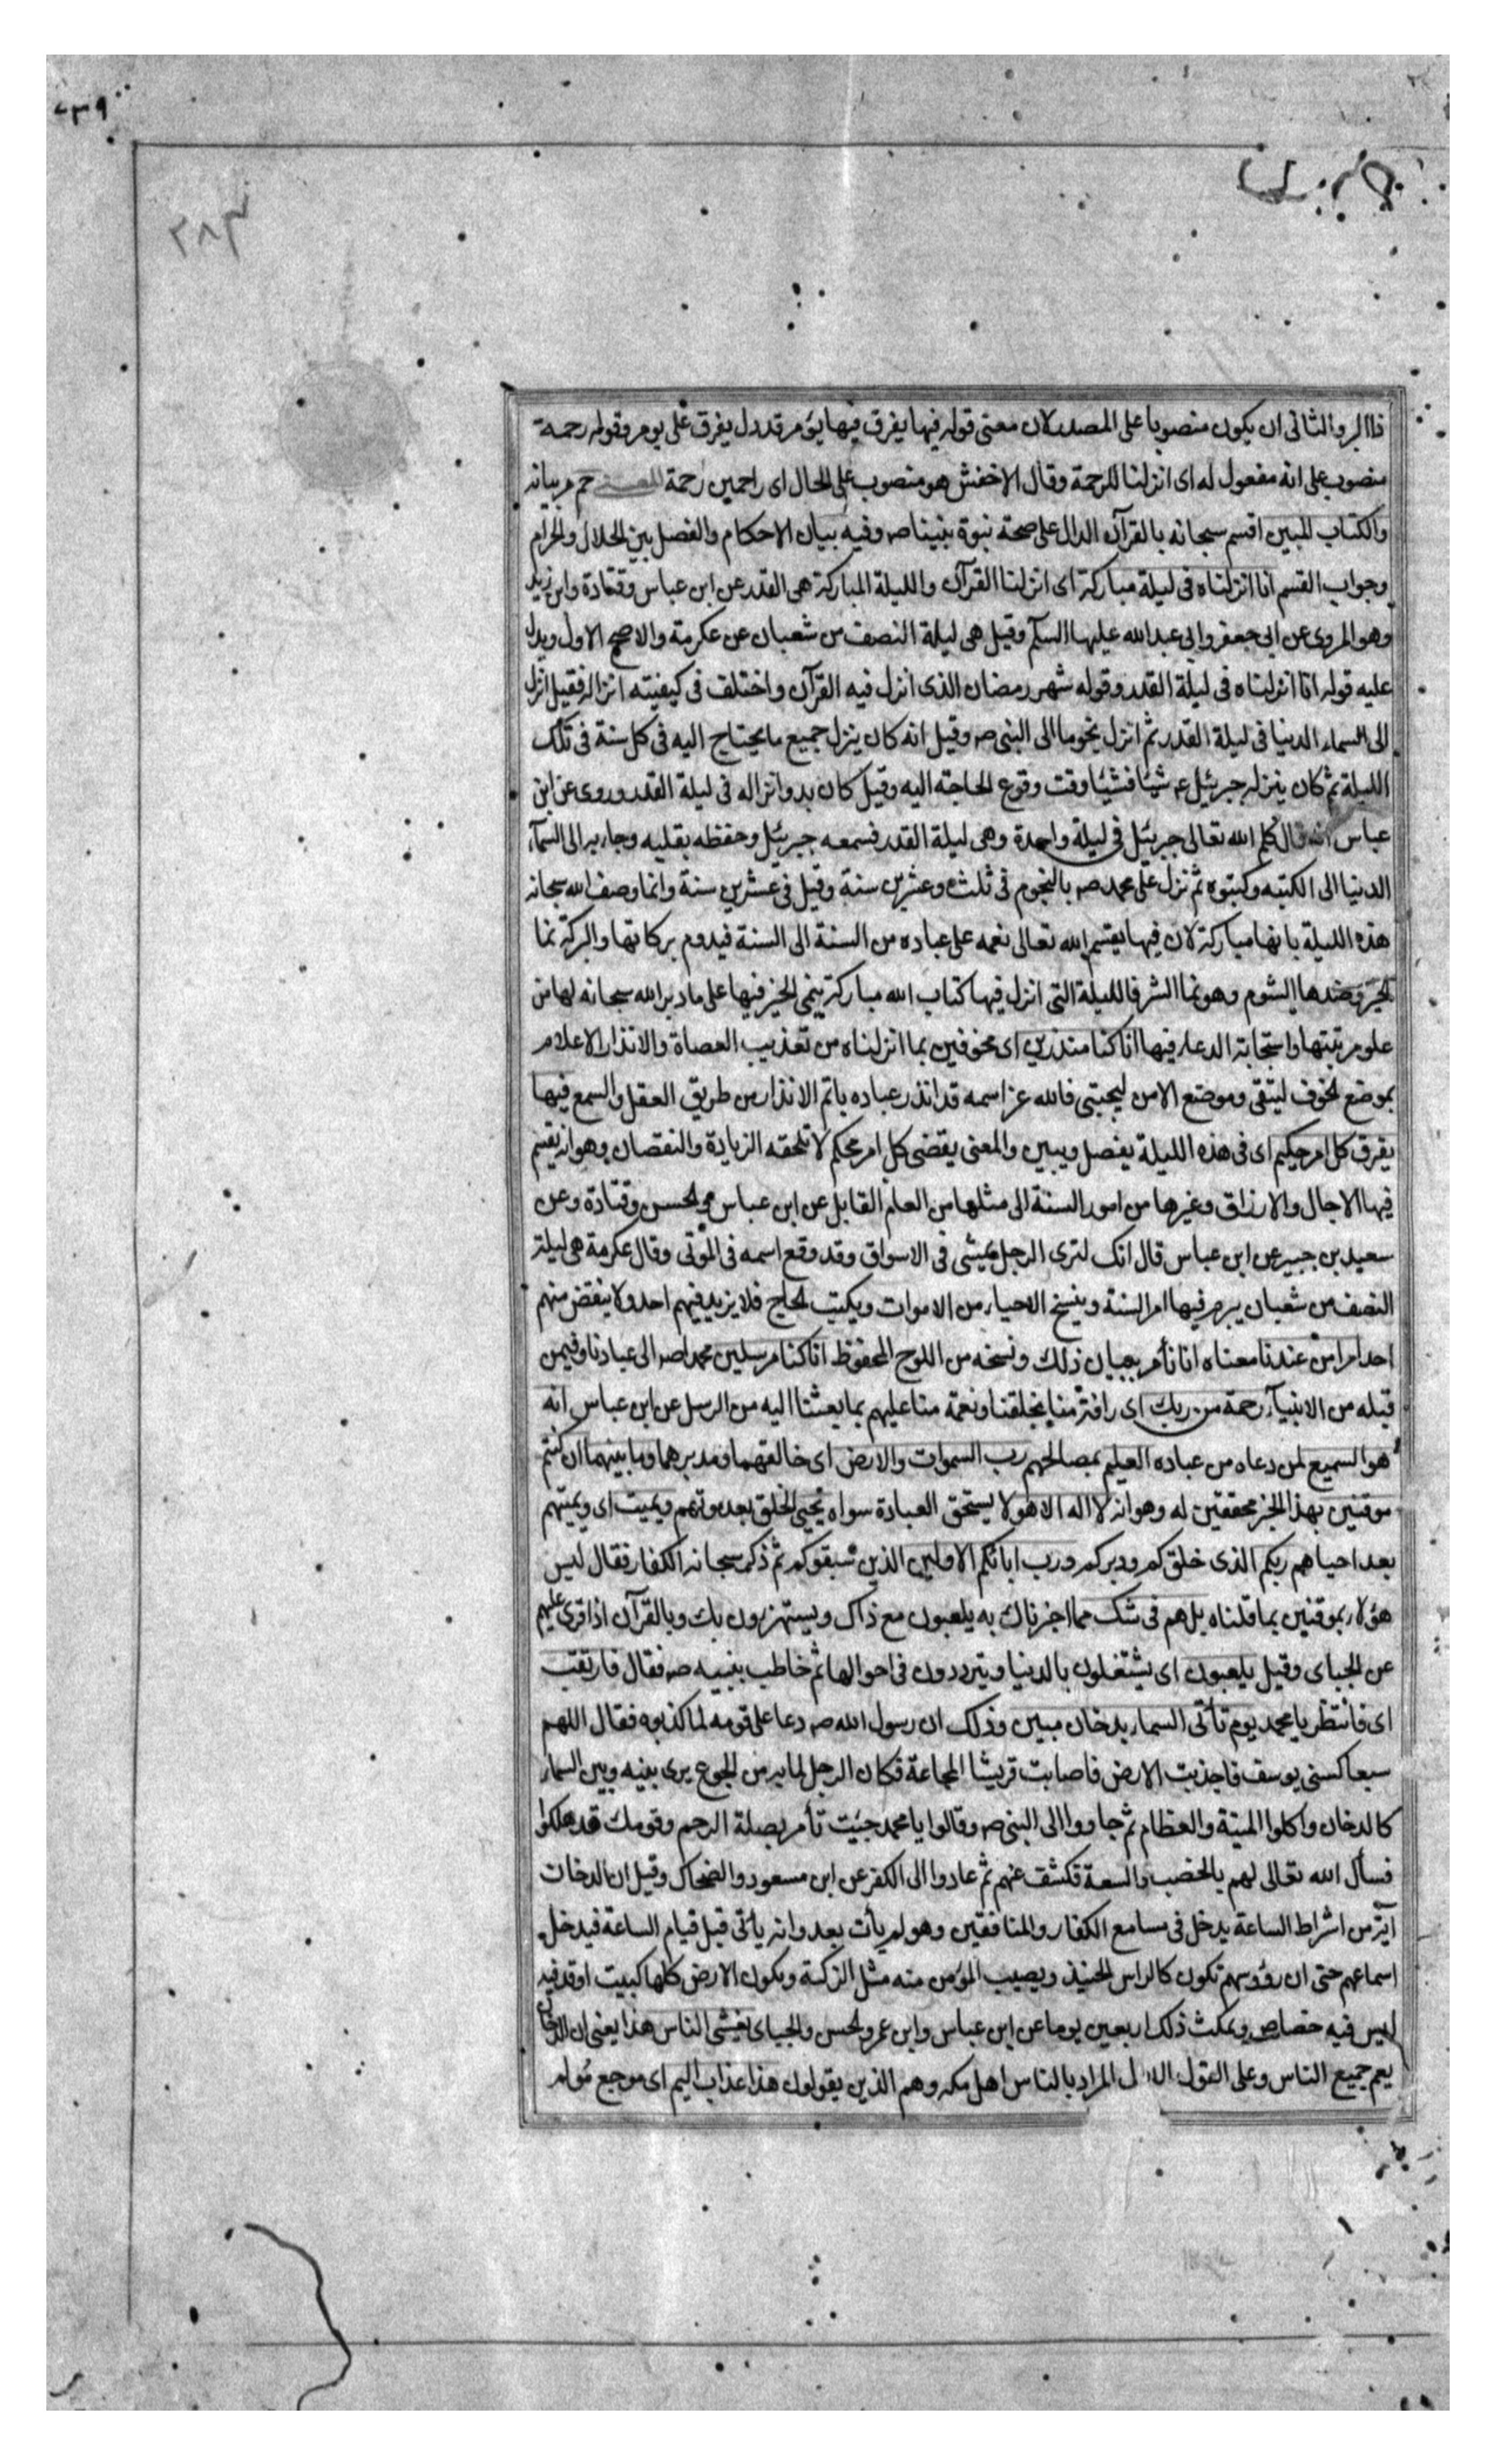 ٧٣٩
٢٨٣
ذا البر والثانى ان يكون منصوبا على المصدر لان معنى قوله فيها يفرق فيها يؤمر قد دل يفرق على يومر وقوله رحمة
منصوب على انه مفعول له اى انزلنا للرحمة وقال الاخفش هو منصوب على الحال اى راحمين رحمة المعنى حم مر بيانه
والكتاب المبين اقسم سبحانه بالقرآن الدال على صحة نبوة نبينا صه وفيه بيان الاحكام والفصل بين الحلال والحرام
وجواب القسم انا انزلناه فى ليلة مباركة اى انزلنا القرآن والليلة المباركة هى القدر عن ابن عباس وقتادة وابن زيد
وهو المروى عن ابى جعفر وابى عبد الله عليهما السلم وقيل هى ليلة النصف من شعبان عن عكرمة والاصح الاول ويدل
عليه قوله انا انزلناه فى ليلة القدر وقوله شهر رمضان الذى انزل فيه القرآن واختلف فى كيفيته انزاله فقيل انزل
الى السماء الدنيا فى ليلة القدر ثم انزل نجوما الى النبى صه وقيل انه كان ينزل جميع ما يحتاج اليه فى كل سنة فى تلك
الليلة ثم كان ينزله جبرئيل عه شيئا فشيئا وقت وقوع الحاجة اليه وقيل كان بدو انزاله فى ليلة القدر وروى عن ابن
عباس انه قال كلم الله تعالى جبرئيل فى ليلة واحدة وهى ليلة القدر فسمعه جبرئيل وحفظه بقلبه وجاء به الى السمآء
الدنيا الى الكتبه وكتبوه ثم نزل على محمد صه بالنجوم فى ثلث وعشرين سنة وقيل فى عشرين سنة وانما وصف الله سبحانه
هذه الليلة بانها مباركة لان فيها يقسم الله تعالى نعمه على عباده من السنة الى السنة فيدوم بركاتها والبركة نما
الخير وضدها الشوم وهو نما الشر فالليلة التى انزل فيها كتاب الله مباركة ينمى الخير فيها على ما دبر الله سبحانه لها من
علو مرتبتها واستجابة الدعاء فيها انا كنا منذرين اى مخوفين بما انزلناه من تعذيب العصاة والانذار الاعلام
بموضع الخوف ليتقى وموضع الامن ليجتبى فالله عز اسمه قد انذر عباده باتم الانذار من طريق العقل والسمع فيها
يفرق كل امر حكيم اى فى هذه الليلة يفصل ويبين والمعنى يقضى كل امر محكم لا تلحقه الزيادة والنقصان وهو انه يقسم
فيها الاجال والارزاق وغيرها من امور السنة الى مثلها من العام القابل عن ابن عباس والحسن وقتادة وعن
سعيد بن جبير عن ابن عباس قال انك لترى الرجل يمشى فى الاسواق وقد وقع اسمه فى الموتى وقال عكرمة هى ليلة
النصف من شعبان يبرم فيها امر السنة وينسخ الاحياء من الاموات ويكتب الحاج فلا يزيد فيهم احد ولا ينقص منهم
احد امرا من عندنا معناه انا نأمر ببيان ذلك ونسخه من اللوح المحفوظ انا كنا مرسلين محمدا صه الى عبادنا وفيمن
قبله من الانبيآء رحمة من ربك اى رافة منا بخلقنا ونعمة منا عليهم بما بعثنا اليه من الرسل عن ابن عباس انه
هو السميع لمن دعاه من عباده العليم بمصالحهم رب السموات والارض اى خالقهما ومدبرهما وما بينهما ان كنتم
موقنين بهذا الخبر محققين له وهو انه لا اله الا هو لا يستحق العبادة سواه يحيى الخلق بعد موتهم ويميت اى ويميتهم
بعد احياهم ربكم الذى خلقكم ودبركم ورب ابائكم الاولين الذين سبقوكم ثم ذكر سبحانه الكفار فقال ليس
هؤلاء بموقنين بما قلناه بل هم فى شك مما اخبرناك به يلعبون مع ذاك ويستهزؤن بك وبالقرآن اذا قرى عليهم
عن الجباى وقيل يلعبون اى يشتغلون بالدنيا ويترددون فى احوالها ثم خاطب بنبيه صه فقال فارتقب
اى فانتظر يا محمد يوم تأتى السماء بدخان مبين وذلك ان رسول الله صه دعا على قومه لما كذبوه فقال اللهم
سبعا كسنى يوسف فاجدبت الارض فاصابت قريشا المجاعة فكان الرجل لما به من الجوع يرى بينه وبين السماء
كالدخان واكلوا الميتة والعظام ثم جاووا الى النبى صه وقالوا يا محمد جئت تأمر بصلة الرحم وقومك قد هلكوا
فسأل الله تعالى لهم بالخضب والسعة فكشف عنهم ثم عادوا الى الكفر عن ابن مسعود والضحاك وقيل ان الدخان
آية من اشراط الساعة يدخل فى مسامع الكفار والمنافقين وهو لم يأت بعد وانه يأتى قبل قيام الساعة فيدخل
اسماعهم حتى ان رؤوسهم تكون كالراس الحنيذ ويصيب المؤمن منه مثل الزكمة وتكون الارض كلها كبيت اوقد فيه
ليس فيه خصاص ويمكث ذلك اربعين يوما عن ابن عباس وابن عمر والحسن والجباى يغشى الناس هذا يعنى ان الدخان
يعم جميع الناس وعلى القول الاول المراد بالناس اهل مكه وهم الذين يقولون هذا عذاب اليم اى موجع مولم